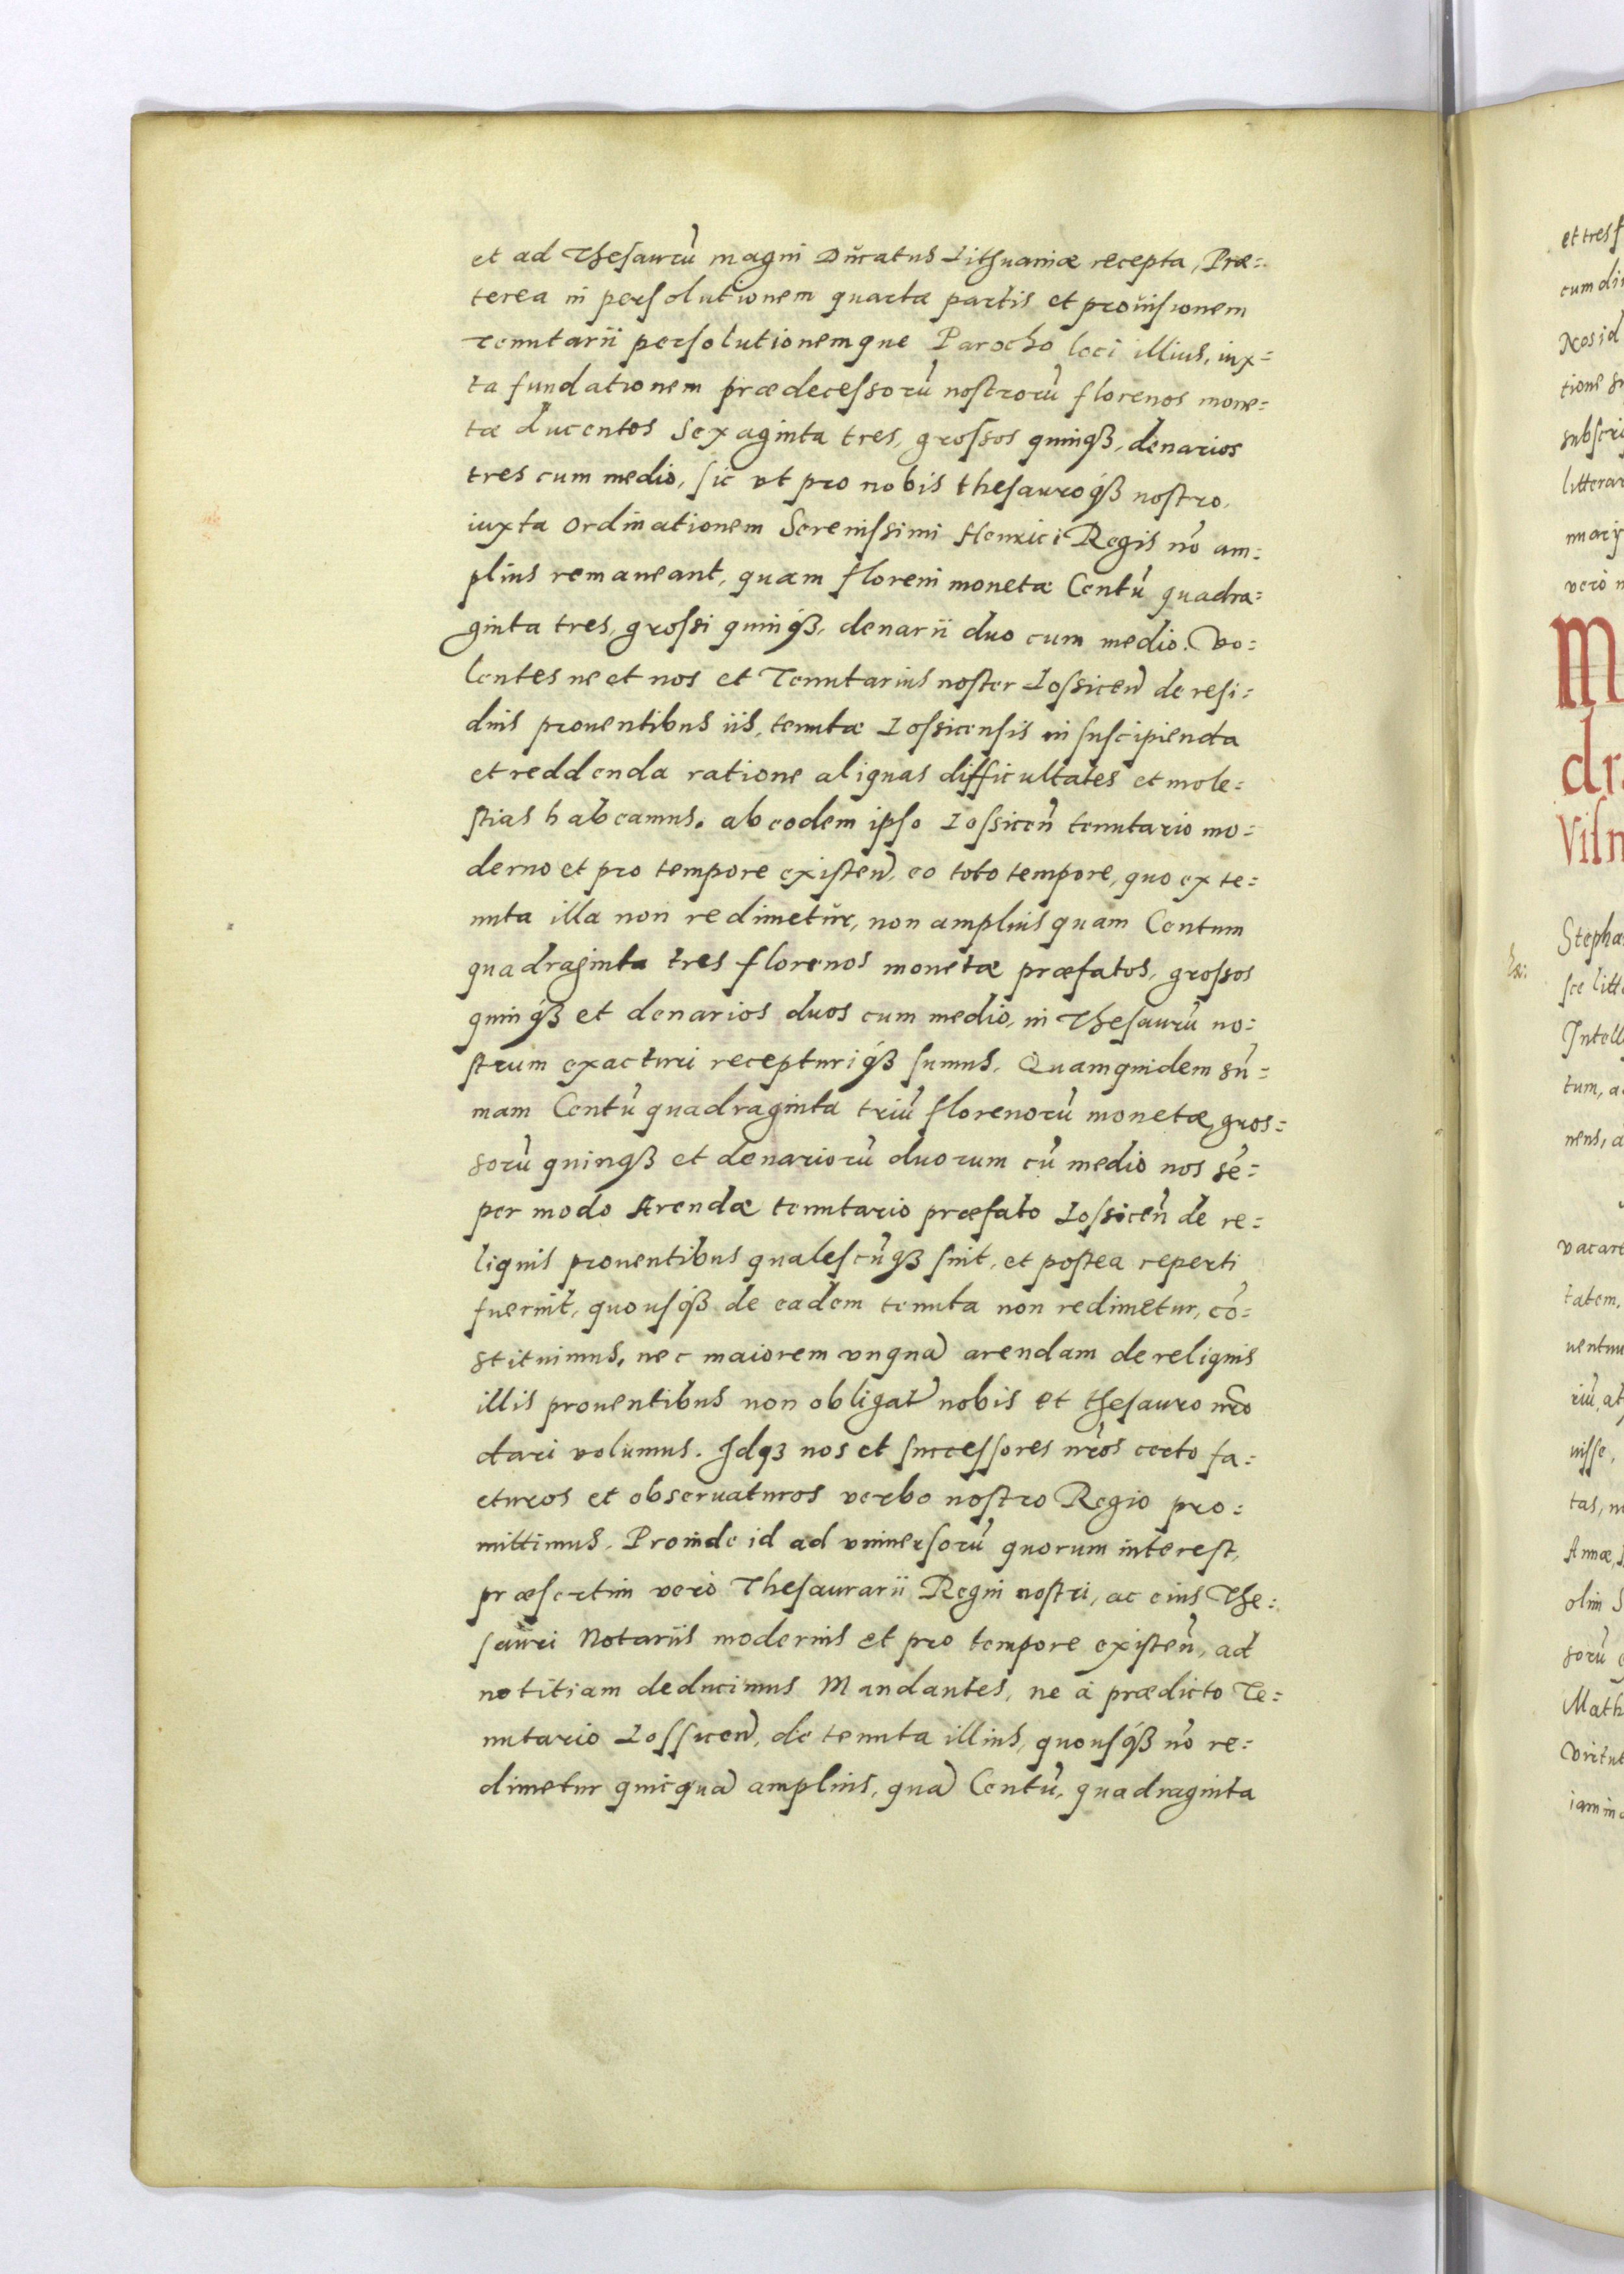 et ad Thesaurū magni Ducatus Lithuaniæ recepta, Præ=
terea in persolutionem quarta partis et prouisionem
tenutarii persolutionemque Parocho loci illius, iux=
ta fundationem prædecessorū nostrorū florenos mone=
tæ ducentos sexaginta tres, grossos quinqꝫ, denarios
tres cum medio, sic vt pro nobis thesauroqꝫ nostro,
iuxta ordinationem Serenissimi Henrici Regis nō am=
plius remaneant, quam floreni monetæ Centū quadra=
ginta tres, grossi quinqꝫ, denarii duo cum medio. Vo=
lentes ne et nos et Tenutarius noster Lossiceñ de resi=
duis prouentibus iis, tenutæ Lossicensis in suscipienda
et reddenda ratione aliquas difficultates et mole=
stias habeamus. ab eodem ipso Lossiceñ tenutario mo=
derno et pro tempore existeñ, eo toto tempore, quo ex te=
nuta illa non redimetur, non amplius quam Centum
quadraginta tres florenos monetæ præfatos, grossos
quinqꝫ et denarios duos cum medio, in Thesaurū no=
strum exacturi recepturiqꝫ sumus. Quamquidem sū=
mam Centū quadraginta triū florenorū monetæ, gros=
sorū quinqꝫ et denariorū duorum cū medio nos sē=
per modo Arendæ tenutario præfato Lossiceñ de re=
liquis prouentibus qualescūqꝫ sint, et postea reperti
fuerint, quousqꝫ de eadem tenuta non redimetur, cō=
stituimus, nec maiorem vnquā arendam de reliquis
illis prouentibus non obligat̃ nobis et thesauro nr̃o
dari volumus. Idqꝫ nos et successores nr̃os certo fa=
cturos et obseruaturos verbo nostro Regio pro=
mittimus. Proinde id ad vniuersorū quorum interest,
præsertim verò Thesaurarii Regni nostri, ac eius The=
sauri Notariis modernis et pro tempore existeñ, ad
notitiam deducimus Mandantes, ne à prædicto Te=
nutario Lossiceñ, de tenuta illius, quousqꝫ nō re=
dimetur quicquā amplius, quā Centū, quadraginta
et tres f
cum di
Nos id
tione s
subscri
litterar
nuarij
vero n
M
dr
Viln
Stepha
sce litt
Intell
tum, a
nens, a
vacare
tatem,
uentuu
riū, at
uisse,
tas, m
Annæ,
olim S
sorū
Math
Virtut
iam in